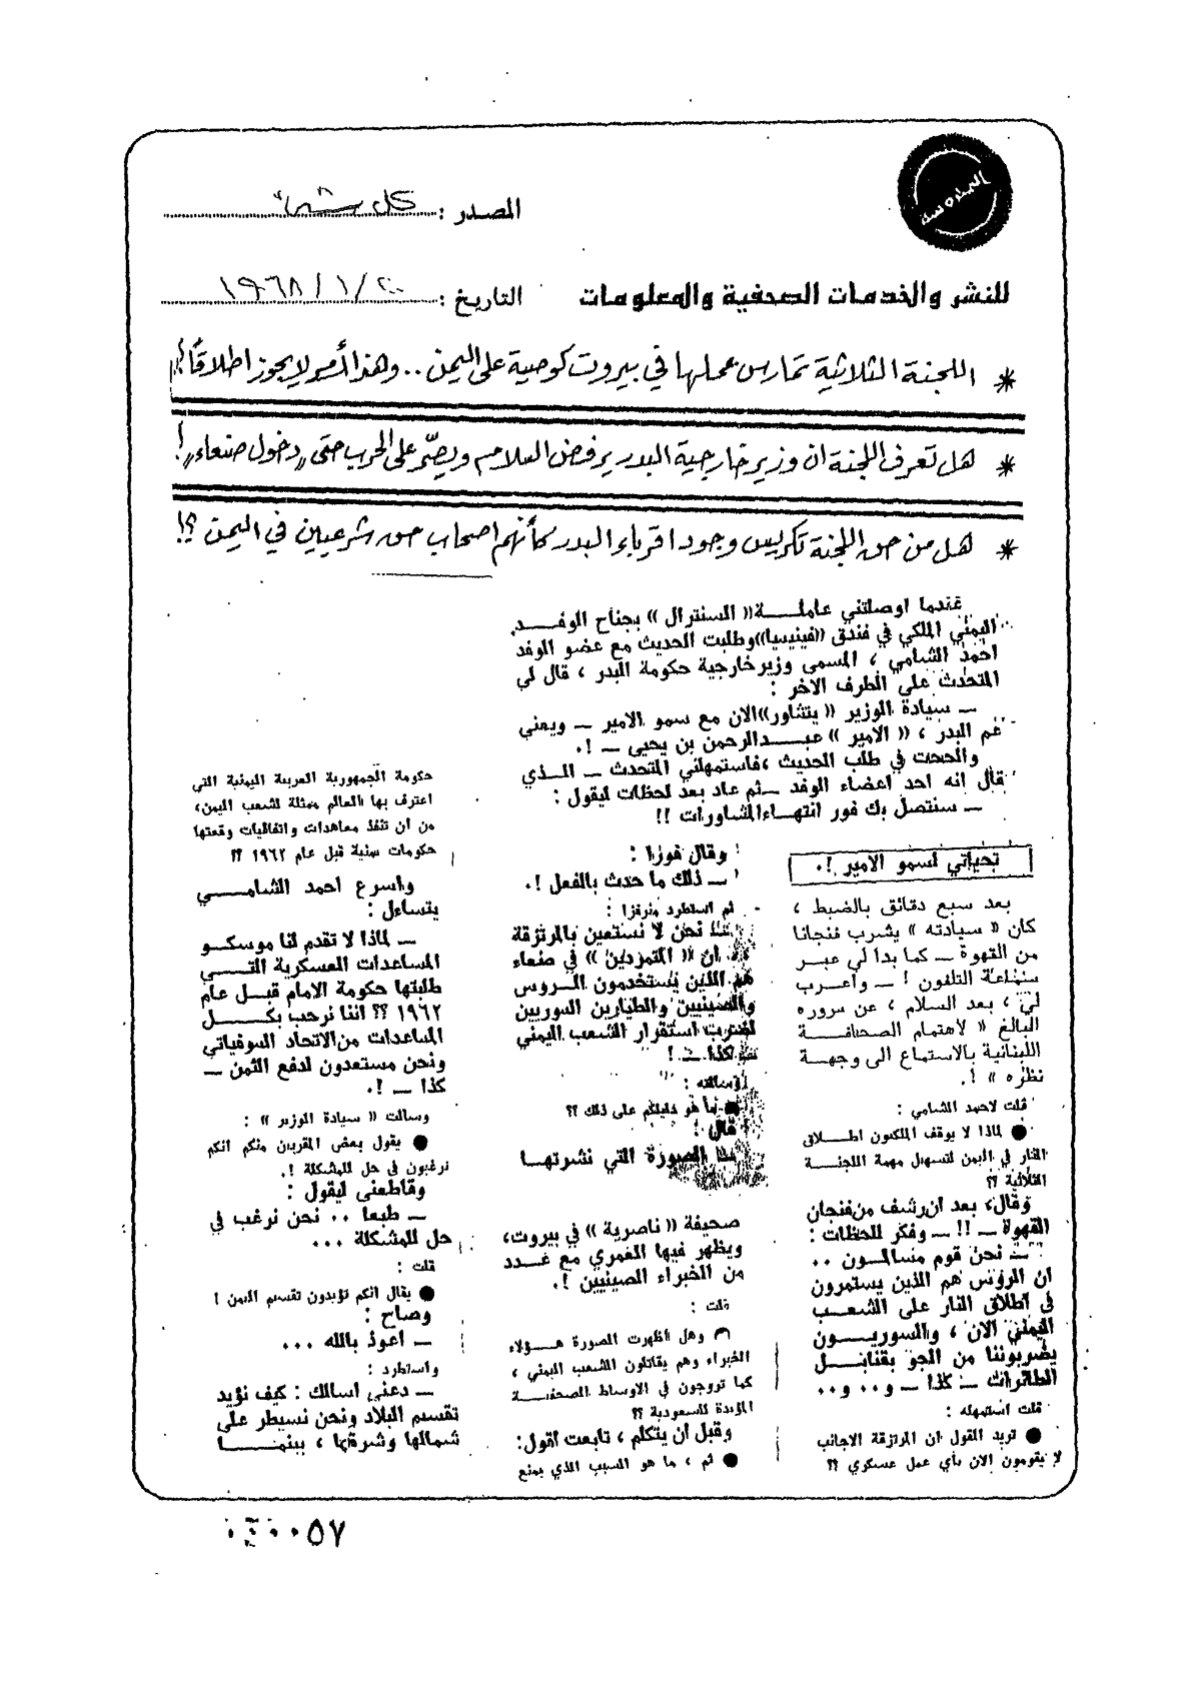 المصدر : كل شيء
للنشر والخدمات الصحفية والمعلومات
التاريخ : ٢٠ / ١ / ١٩٦٨
* اللجنة الثلاثية تمارس عملها في بيروت كوصية على اليمن .. وهذا أمر لا يجوز اطلاقاً !
* هل تعرف اللجنة ان وزير خارجية البدر يرفض السلام ويصّر على الحرب حتى «دخول صنعاء» !
* هل من حق اللجنة تكريس وجود اقرباء البدر كأنهم اصحاب حق شرعيين في اليمن ؟!
عندما اوصلتني عاملة «السنترال» بجناح الوفد
اليمني الملكي في فندق «فينيسيا» وطلبت الحديث مع عضو الوفد
احمد الشامي ، المسمى وزير خارجية حكومة البدر ، قال لي
المتحدث على الطرف الاخر :
ـ سيادة الوزير «يتشاور» الان مع سمو الامير ـ ويعني
عم البدر ، «الامير» عبدالرحمن بن يحيى ـ !.
والححت في طلب الحديث ، فاستمهلني المتحدث ـ الذي
قال انه احد اعضاء الوفد ـ ثم عاد بعد لحظات ليقول :
ـ سنتصل بك فور انتهاء المشاورات !!
تحياتي لسمو الامير !.
بعد سبع دقائق بالضبط ،
كان « سيادته » يشرب فنجانا
من القهوة ـ كما بدا لي عبر
سماعة التلفون ! ـ واعرب
لي ، بعد السلام ، عن سروره
البالغ « لاهتمام الصحافة
اللبنانية بالاستماع الى وجهة
نظره » !.
قلت لاحمد الشامي :
● لماذا لا يوقف الملكيون اطلاق
النار في اليمن لتسهيل مهمة اللجنة
الثلاثية ؟؟
وقال، بعد ان رشف من فنجان
القهوة ـ !! ـ وفكر للحظات :
ـ نحن قوم مسالمون ..
ان الروس هم الذين يستمرون
في اطلاق النار على الشعب
اليمني الان ، والسوريون
يضربوننا من الجو بقنابل
الطائرات ـ كذا ـ و .. و ..
قلت استمهله :
● تريد القول ان المرتزقة الاجانب
لا يقومون الان بأي عمل عسكري ؟؟
وقال فورا :
ـ ذلك ما حدث بالفعل !.
ثم استطرد مرفزا :
نحن لا نستعين بالمرتزقة
ان « المتمردين » في صنعاء
هم الذين يستخدمون الروس
والصينيين والطيارين السوريين
لضرب استقرار الشعب اليمني
كذا ـ !
وسالته :
● ما هو دليلكم على ذلك ؟؟
قال :
الصورة التي نشرتها
صحيفة «ناصرية» في بيروت،
ويظهر فيها العمري مع عدد
من الخبراء الصينيين !.
قلت :
● وهل اظهرت الصورة هؤلاء
الخبراء وهم يقاتلون الشعب اليمني ،
كما تروجون في الاوساط الصحفية
المؤيدة للسعودية ؟؟
وقبل أن يتكلم ، تابعت أقول:
● ثم ، ما هو السبب الذي يمنع
حكومة الجمهورية العربية اليمنية التي
اعترف بها العالم ممثلة لشعب اليمن،
من ان تنفذ معاهدات واتفاقيات وقعتها
حكومات سنية قبل عام ١٩٦٢ ؟؟
واسرع احمد الشامي
يتساءل :
ـ لماذا لا تقدم لنا موسكو
المساعدات العسكرية التي
طلبتها حكومة الامام قبل عام
١٩٦٢ ؟؟ اننا نرحب بكل
المساعدات من الاتحاد السوفياتي
ونحن مستعدون لدفع الثمن ـ
كذا ـ !.
وسالت « سيادة الوزير » :
● يقول بعض المقربين منكم انكم
ترغبون في حل للمشكلة !.
وقاطعني ليقول :
ـ طبعا .. نحن نرغب في
حل للمشكلة ...
قلت :
● يقال انكم تؤيدون تقسيم اليمن !
وصاح :
ـ اعوذ بالله ...
واستطرد :
ـ دعني اسالك : كيف نؤيد
تقسيم البلاد ونحن نسيطر على
شمالها وشرقها ، بينما